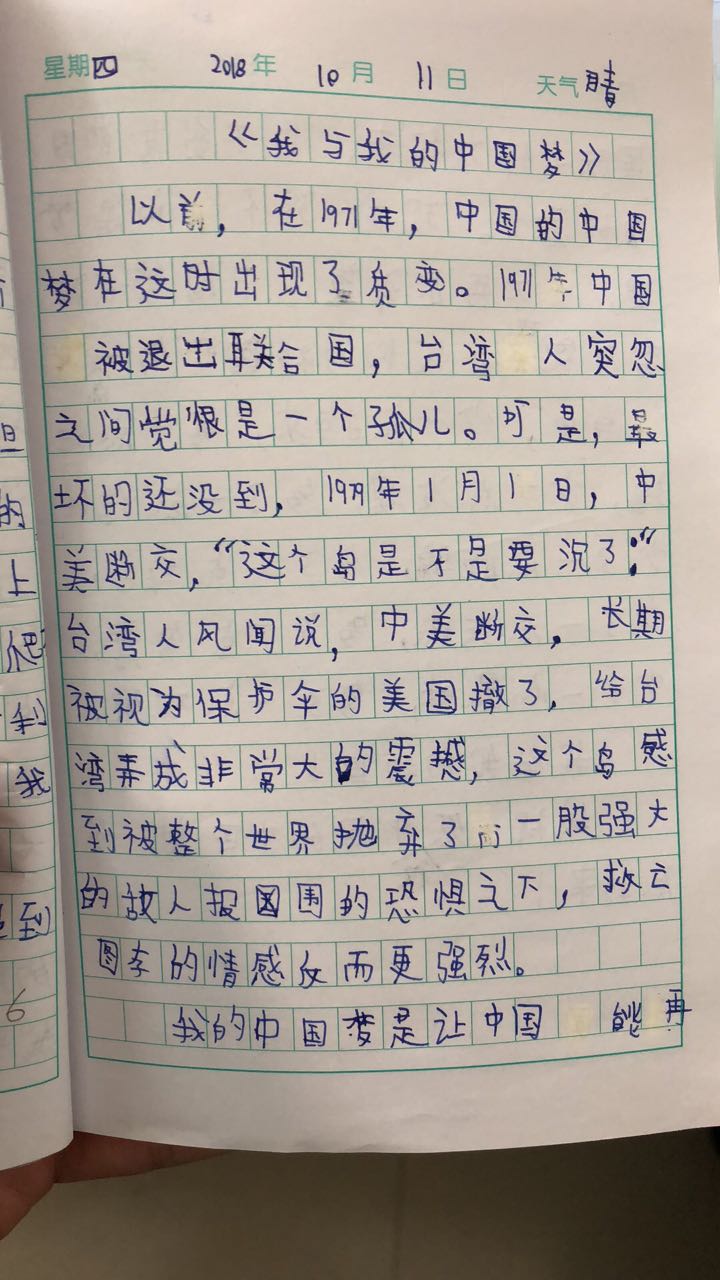 星期四 2018年 10月 11日 天气晴
《我与我的中国梦》
以前，在1971年，中国的中国
梦在这时出现了质变。1971年中国
被退出联合国，台湾人突忽
之间觉恨是一个孤儿。可是，最
坏的还没到，1979年1月1日，中
美断交，“这个岛是不是要沉了：”
台湾人风闻说，中美断交，长期
被视为保护伞的美国撤了，给台
湾弄成非常大的震撼，这个岛感
到被整个世界抛弃了 一股强大
的敌人报国围的恐惧之下，救亡
图李的情感反而更强烈。
我的中国梦是让中国能再
旦
的
上
爬
到
我
到
6